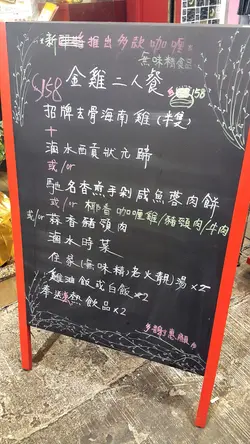 新 推出多款咖喱
無味精食品
$158 金雞二人餐 158
招牌去骨海南雞(半隻)
+
滷水西貢狀元蹄
或/or
馳名香煎手剁咸魚蓉肉餅
或/or 椰香咖喱雞/豬頸肉/牛肉
或/or 蒜香豬頸肉
滷水時菜
住家(無味精老火靚)湯×2
雞油飯或白飯×2
奉送熱飲品×2
多謝惠顧